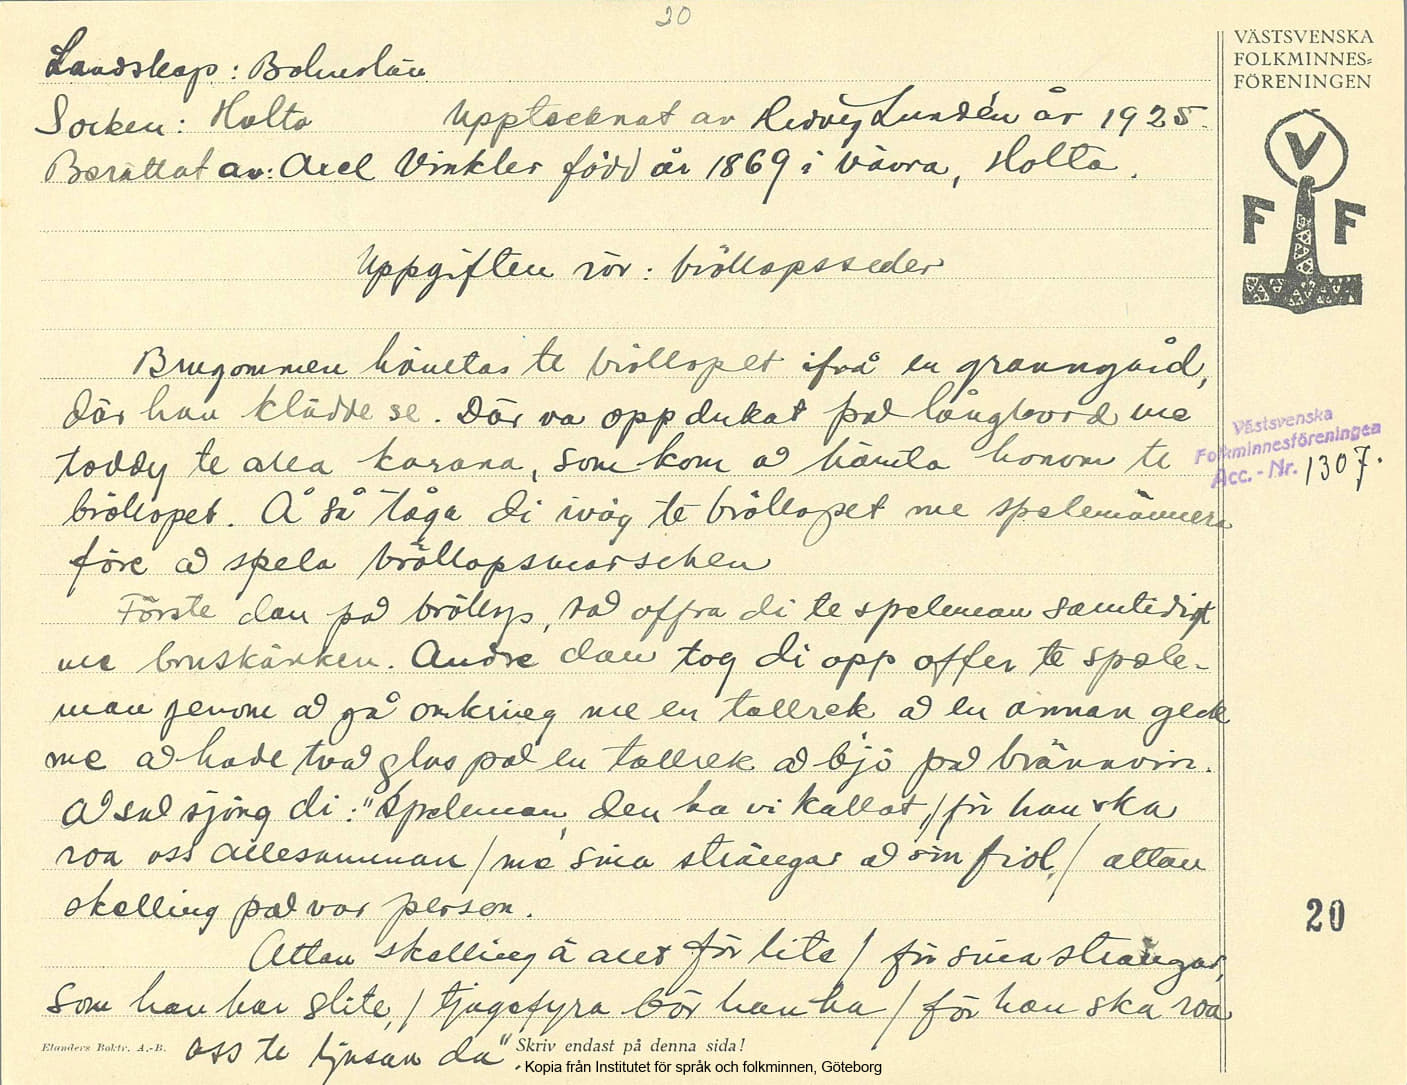 20
Landskap: Bohuslän
Socken: Holta Upptecknat av Hedvig Lundén år 1925.
Berättat av: Axel Vinkler född år 1869 i Vävra, Holta.
Uppgiften rör: bröllopsseder
Brugommen hämtas te bröllopet ifrå en granngård,
där han klädde se. Där va oppdukat på långbord me
toddy te alla karana, som kom å hämta honom te
bröllopet. Å så tåga di iväg te bröllopet me spelemännera
före å spela bröllopsmarschen
Förste dan på bröllop, så offra di te speleman samtidigt
me bruskänken. Andre dan tog di opp offer te spele-
man jenom å gå omkring me en tallrek å en annan geck
me å hade två glas på en tallrek å bjö på brännvin.
Å så sjöng di: "Speleman, den ha vi kallat, / för han ska
roa oss allesamman / me sina strängar å sin fiol, / attan
skelling på var person.
Attan skelling ä allt för lite / för sina strängar,
som han har slite, / tjugofyra bör han ha / för han ska roa
oss te ljusan da".
VÄSTSVENSKA
FOLKMINNES=
FÖRENINGEN
V
F F
Västsvenska
Folkminnesföreningen
Acc. - Nr. 1307.
20
Elanders Boktr. A.-B. Skriv endast på denna sida!
Kopia från Institutet för språk och folkminnen, Göteborg